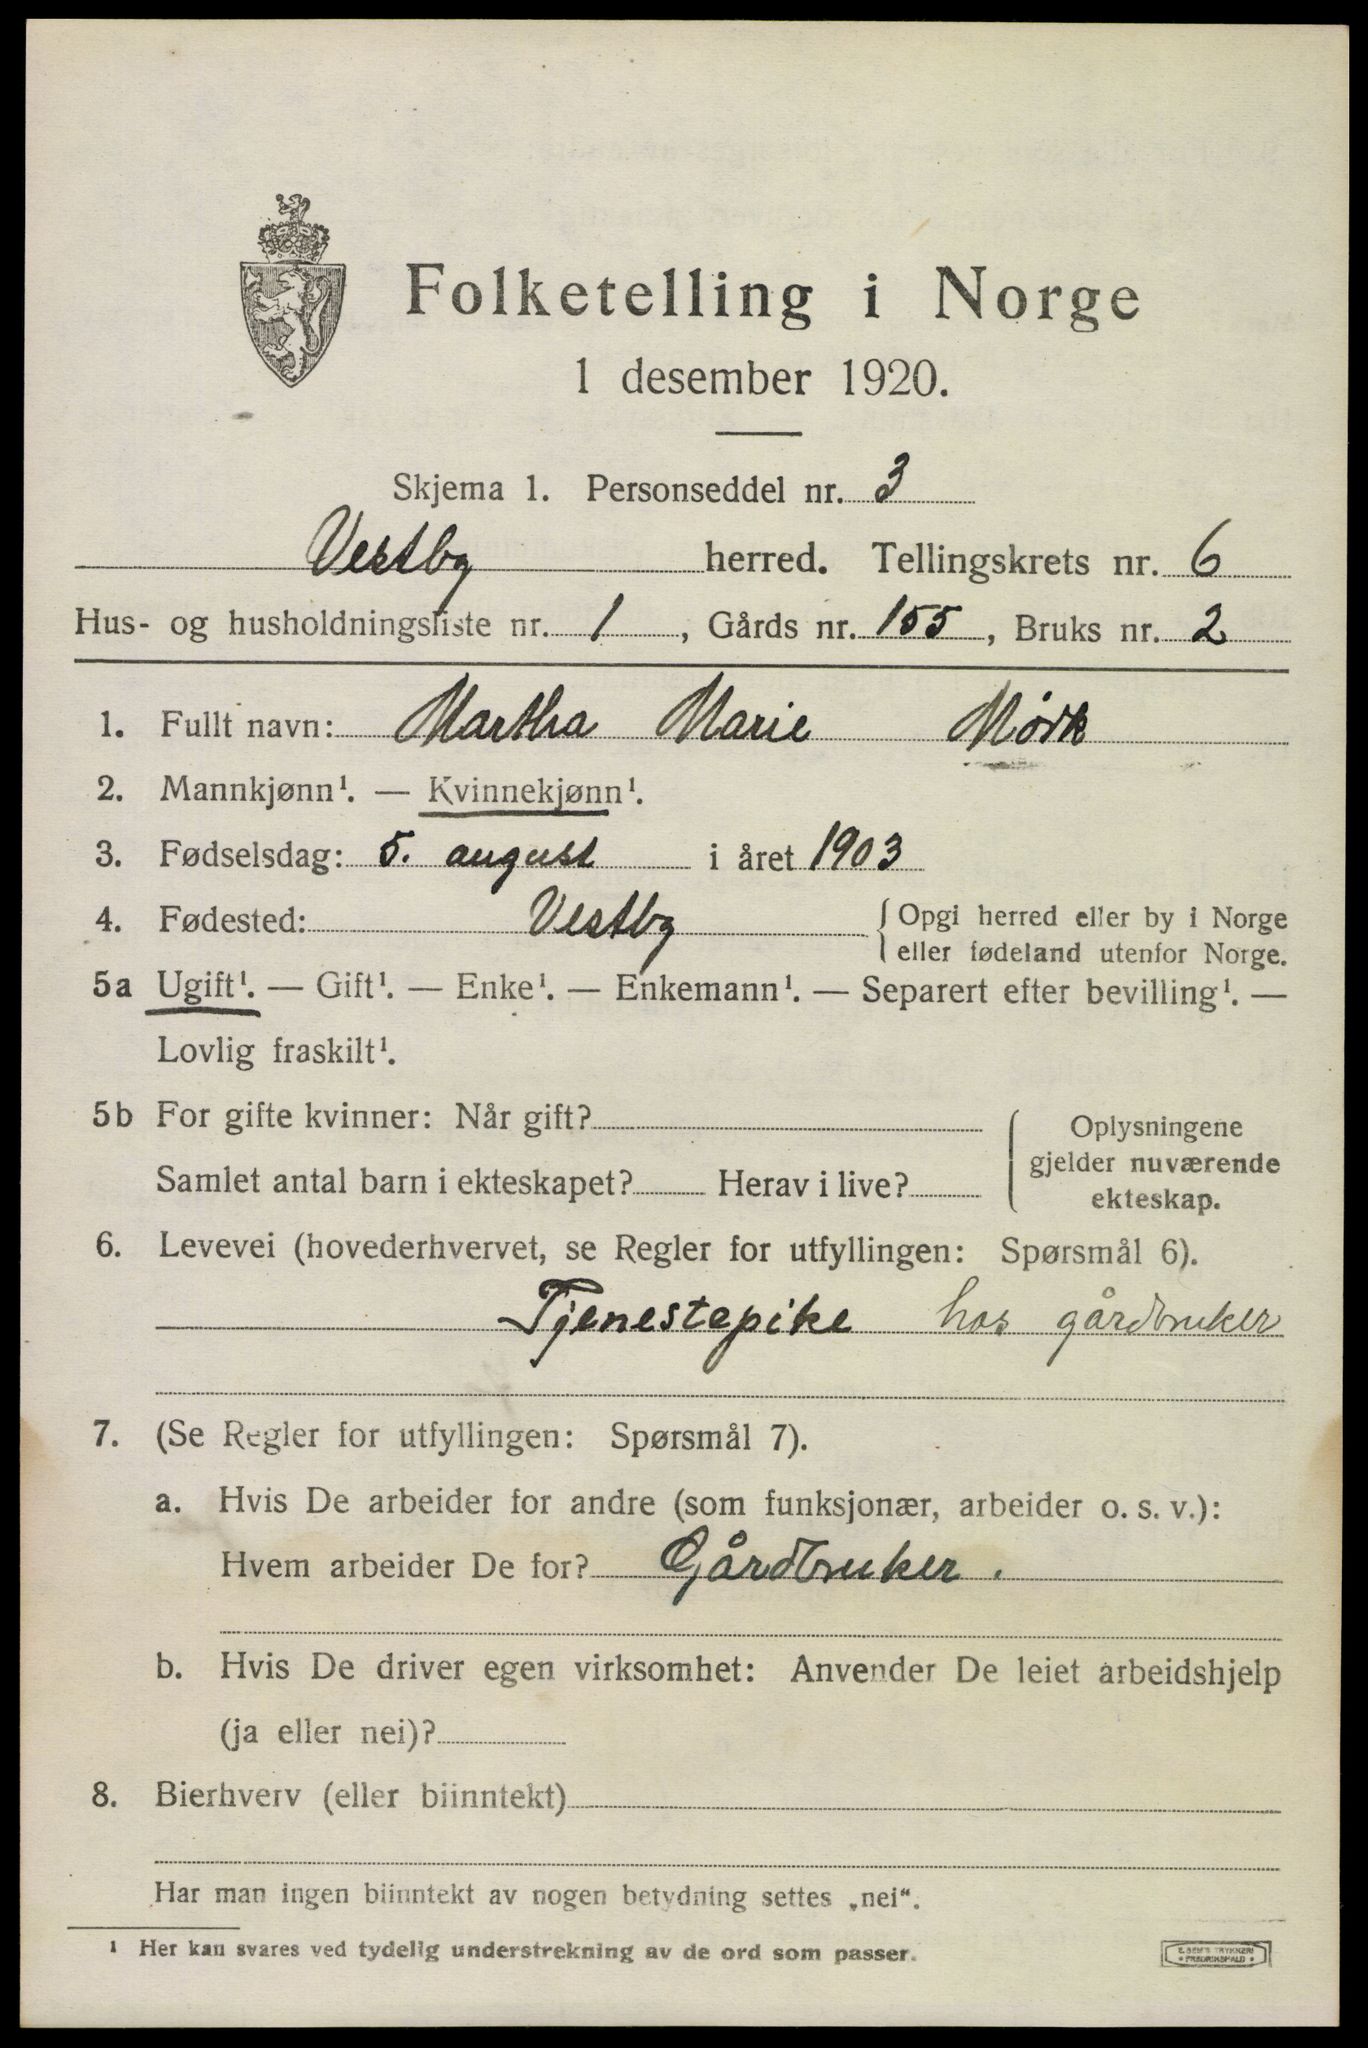 Folketelling i Norge
1 desember 1920.
Skjema 1. Personseddel nr. 3
Vestby herred. Tellingskrets nr. 6
Hus- og husholdningsliste nr. 1, Gårds nr. 155, Bruks nr. 2
1. Fullt navn: Martha Marie Mørk
2. Mannkjønn¹. — Kvinnekjønn¹.
3. Fødselsdag: 5. august i året 1903
4. Fødested: Vestby {Opgi herred eller by i Norge
eller fødeland utenfor Norge.
5a Ugift¹. — Gift¹. — Enke¹. — Enkemann¹. — Separert efter bevilling¹. —
Lovlig fraskilt¹.
5b For gifte kvinner: Når gift?
Samlet antal barn i ekteskapet? Herav i live?
Oplysningene
gjelder nuværende
ekteskap.
6. Levevei (hovederhvervet, se Regler for utfyllingen: Spørsmål 6).
Tjenestepike hos gårdbruker
7. (Se Regler for utfyllingen: Spørsmål 7).
a. Hvis De arbeider for andre (som funksjonær, arbeider o. s. v.):
Hvem arbeider De for? Gårdbruker.
b. Hvis De driver egen virksomhet: Anvender De leiet arbeidshjelp
(ja eller nei)?
8. Bierhverv (eller biinntekt)
Har man ingen biinntekt av nogen betydning settes „nei“.
¹ Her kan svares ved tydelig understrekning av de ord som passer.
E. SEM'S TRYKKERI
• FREDRIKSHALD •